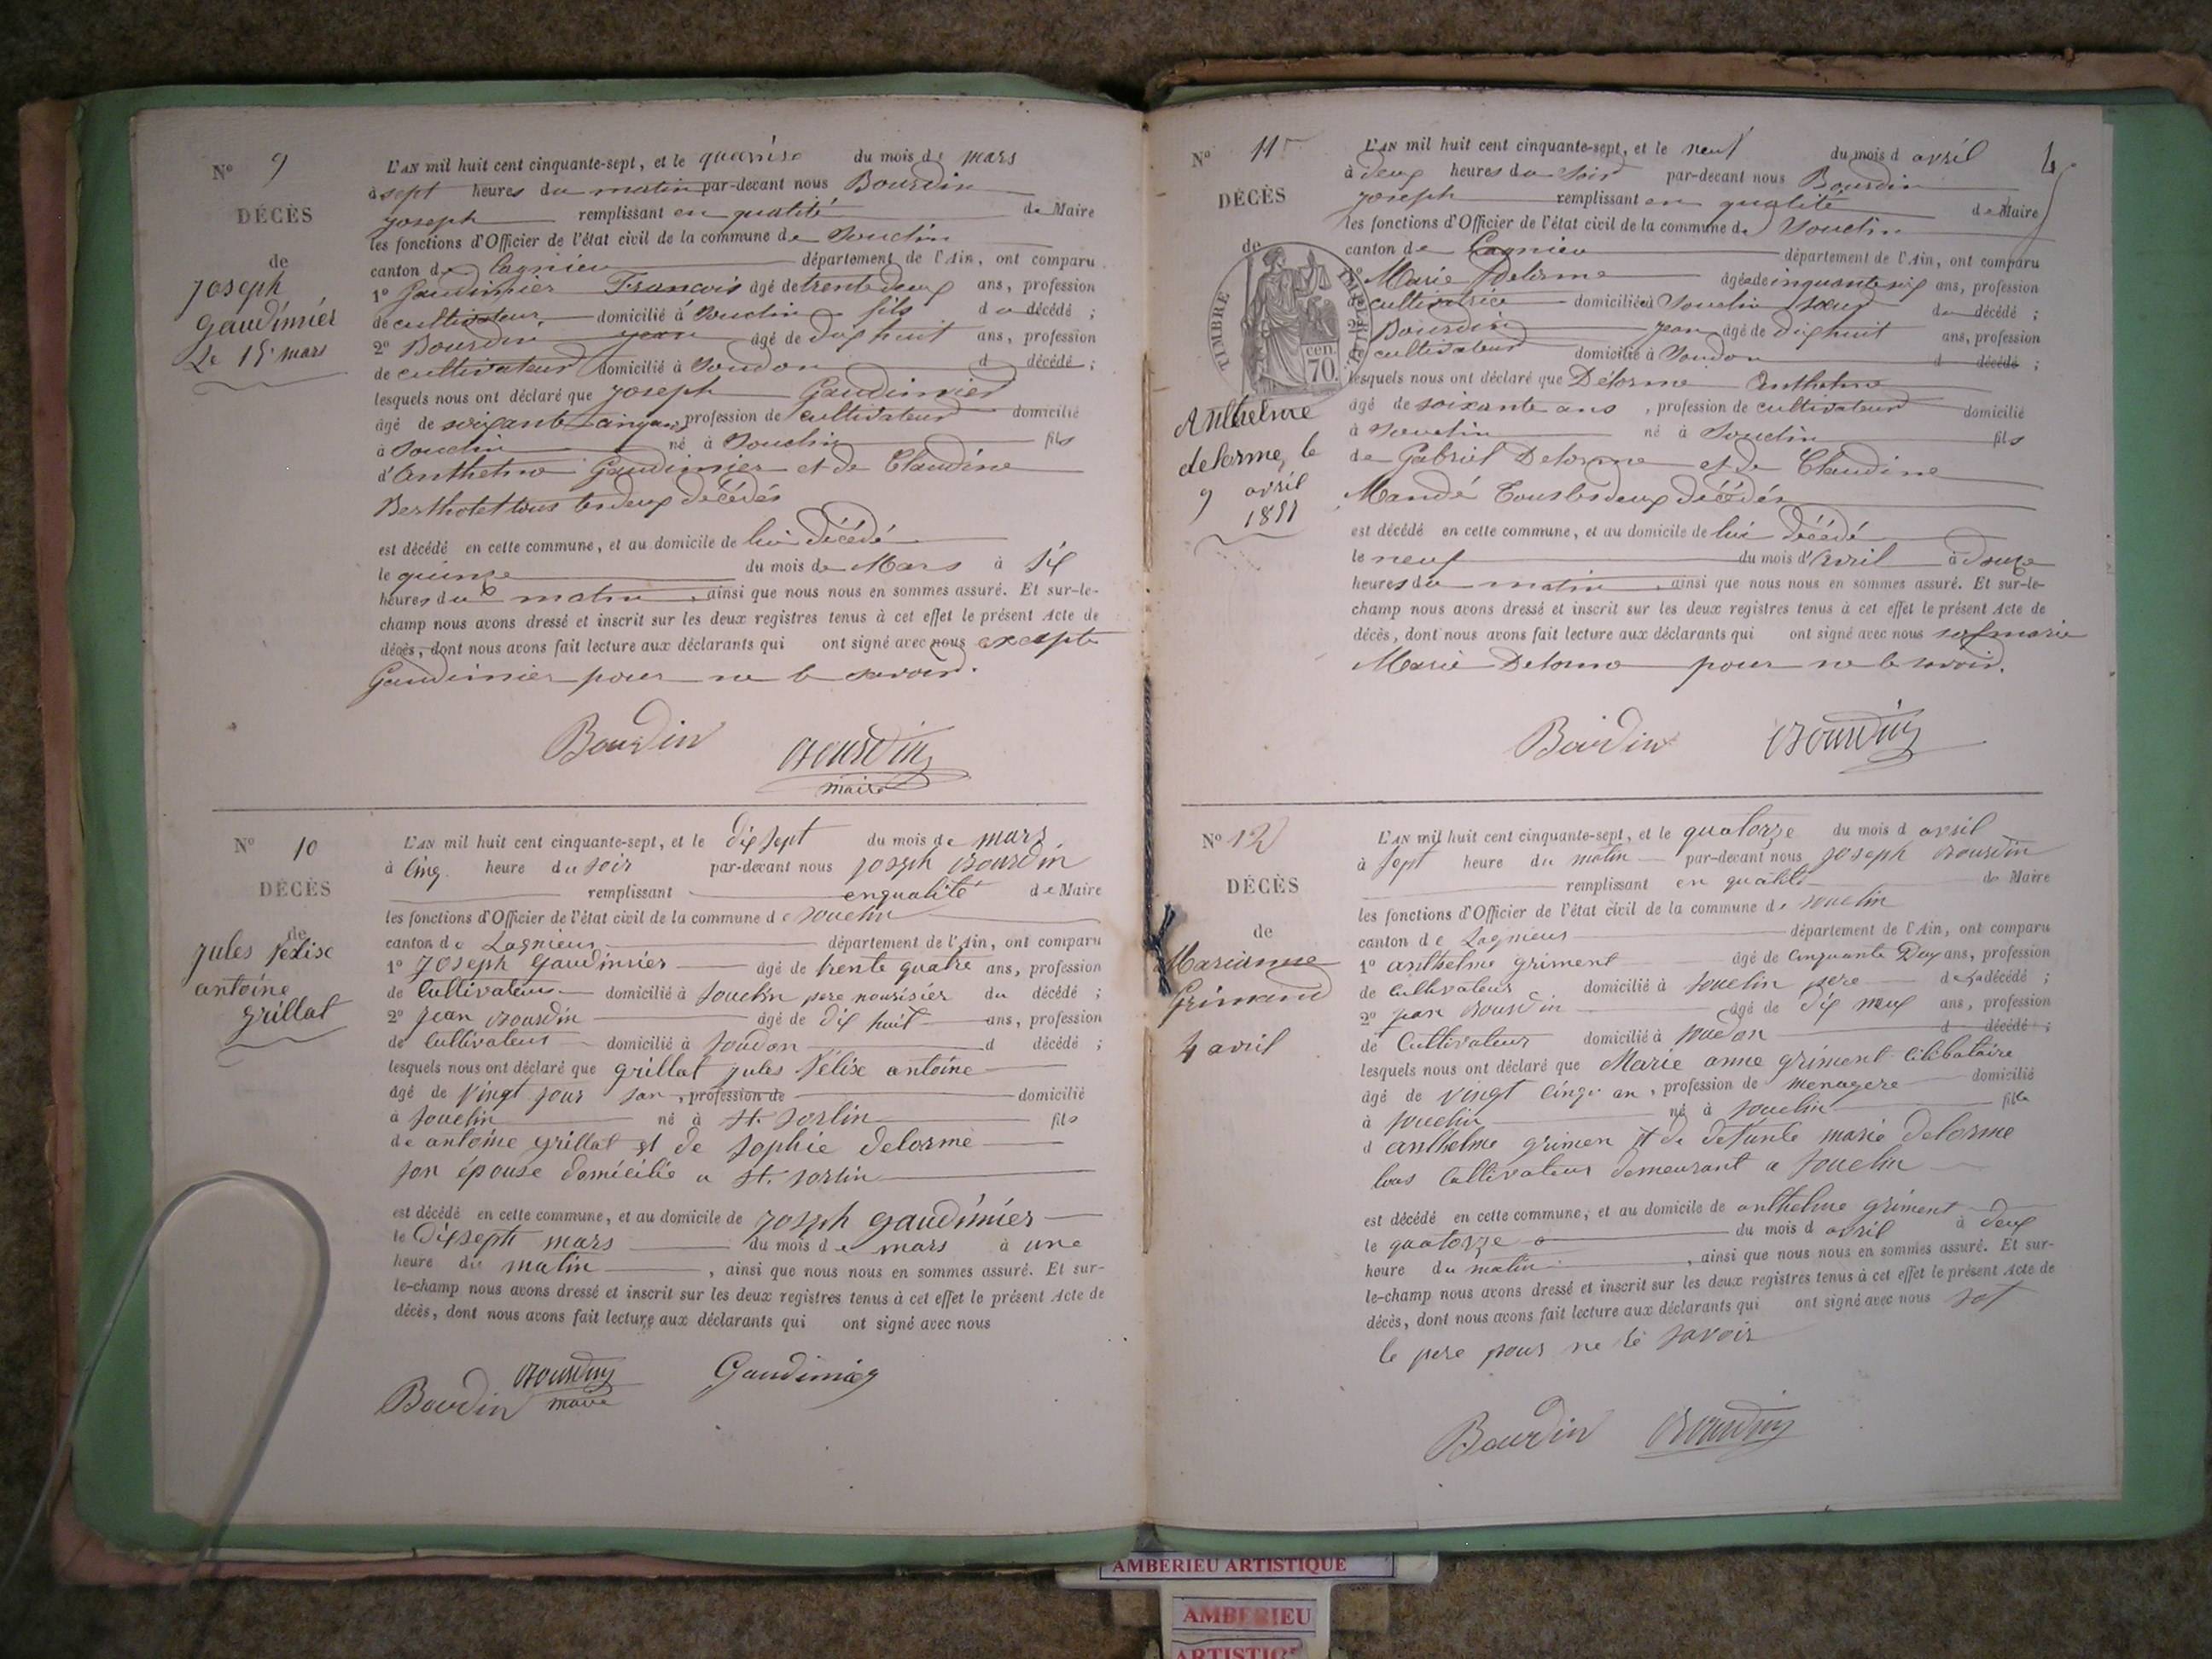 N° 9
DÉCÈS
de
Joseph
Gaudinier
Le 15 mars
L'AN mil huit cent cinquante-sept, et le du mois de mars
à sept heures du matin par-devant nous Bourdin
Joseph remplissant en qualité de Maire
les fonctions d'Officier de l'état civil de la commune de Souclin
canton de Lagnieu département de l'Ain, ont comparu
1° François âgé de trente deux ans, profession
de cultivateur domicilié à Souclin fils du décédé ;
2° Bourdin Jean âgé de dix huit ans, profession
de cultivateur domicilié à Soudon d décédé ;
lesquels nous ont déclaré que Joseph Gaudinier
âgé de soixante profession de cultivateur domicilié
à Souclin né à Souclin fils
d'Anthelme Gaudinier et de Claudine
tous les deux décédés
est décédé en cette commune, et au domicile de lui décédé
le quinze du mois de Mars à six
heures du matin, ainsi que nous nous en sommes assuré. Et sur-le-
champ nous avons dressé et inscrit sur les deux registres tenus à cet effet le présent Acte de
décès, dont nous avons fait lecture aux déclarants qui ont signé avec nous excepte
Gaudinier pour ne le savoir.
Bourdin Bourdin
maire
N° 10
DÉCÈS
de
Jules
antoine
grillat
L'AN mil huit cent cinquante-sept, et le dix sept du mois de mars
à cinq heure du soir par-devant nous joseph bourdin
remplissant enqualité de Maire
les fonctions d'Officier de l'état civil de la commune de souclin
canton de Lagnieu département de l'Ain, ont comparu
1° Joseph gaudinier âgé de trente quatre ans, profession
de Cultivateur domicilié à souclin pere nourisier du décédé ;
2° jean bourdin âgé de dix huit ans, profession
de Cultivateur domicilié à soudon d décédé ;
lesquels nous ont déclaré que grillat jules félise antoine
âgé de vingt jour ans, profession de domicilié
à souclin né à st. sorlin fils
de antoine grillat et de sophie delorme
son épouse domicilié a st. sorlin
est décédé en cette commune, et au domicile de joseph gaudinier
le dix sept mars du mois de mars à une
heure du matin, ainsi que nous nous en sommes assuré. Et sur-
le-champ nous avons dressé et inscrit sur les deux registres tenus à cet effet le présent Acte de
décès, dont nous avons fait lecture aux déclarants qui ont signé avec nous
Bourdin bourdin Gaudinier
maire
4
N° 11
DÉCÈS
de
TIMBRE IMPÉRIAL
70 cen.
Anthelme
delorme, le
9 avril
L'AN mil huit cent cinquante-sept, et le neuf du mois d avril
à deux heures du soir par-devant nous Bourdin
Joseph remplissant en qualité de Maire
les fonctions d'Officier de l'état civil de la commune de Souclin
canton de Lagnieu département de l'Ain, ont comparu
1° Marie Delorme âgée de cinquante six ans, profession
de cultivatrice domiciliée à Souclin sœur du décédé ;
2° Bourdin Jean âgé de dix huit ans, profession
de cultivateur domicilié à Soudon d décédé ;
lesquels nous ont déclaré que Delorme Anthelme
âgé de soixante ans, profession de cultivateur domicilié
à Souclin né à Souclin fils
de Gabriel Delorme et de Claudine
Tous les deux décédés
est décédé en cette commune, et au domicile de lui décédé
le neuf du mois d'Avril à douze
heures du matin, ainsi que nous nous en sommes assuré. Et sur-le-
champ nous avons dressé et inscrit sur les deux registres tenus à cet effet le présent Acte de
décès, dont nous avons fait lecture aux déclarants qui ont signé avec nous
Marie Delorme pour ne le savoir.
Bourdin Bourdin
N° 12
DÉCÈS
de
Marianne
4 avril
L'AN mil huit cent cinquante-sept, et le quatorze du mois d avril
à sept heure du matin par-devant nous joseph bourdin
remplissant en qualité de Maire
les fonctions d'Officier de l'état civil de la commune de souclin
canton de Lagnieu département de l'Ain, ont comparu
1° anthelme griment âgé de cinquante deux ans, profession
de cultivateur domicilié à souclin pere de la décédé ;
2° jean bourdin âgé de dix neuf ans, profession
de Cultivateur domicilié à soudon d décédé ;
lesquels nous ont déclaré que Marie anne griment
âgé de vingt cinq an, profession de menagere domicilié
à souclin né à souclin fille
d anthelme grimen et de defunte marie delorme
Cultivateur demeurant a souclin
est décédé en cette commune, et au domicile de anthelme griment
le quatorze du mois d avril à deux
heure du matin, ainsi que nous nous en sommes assuré. Et sur-
le-champ nous avons dressé et inscrit sur les deux registres tenus à cet effet le présent Acte de
décès, dont nous avons fait lecture aux déclarants qui ont signé avec nous
le pere pour ne le savoir
Bourdin Bourdin
AMBERIEU ARTISTIQUE
AMBERIEU